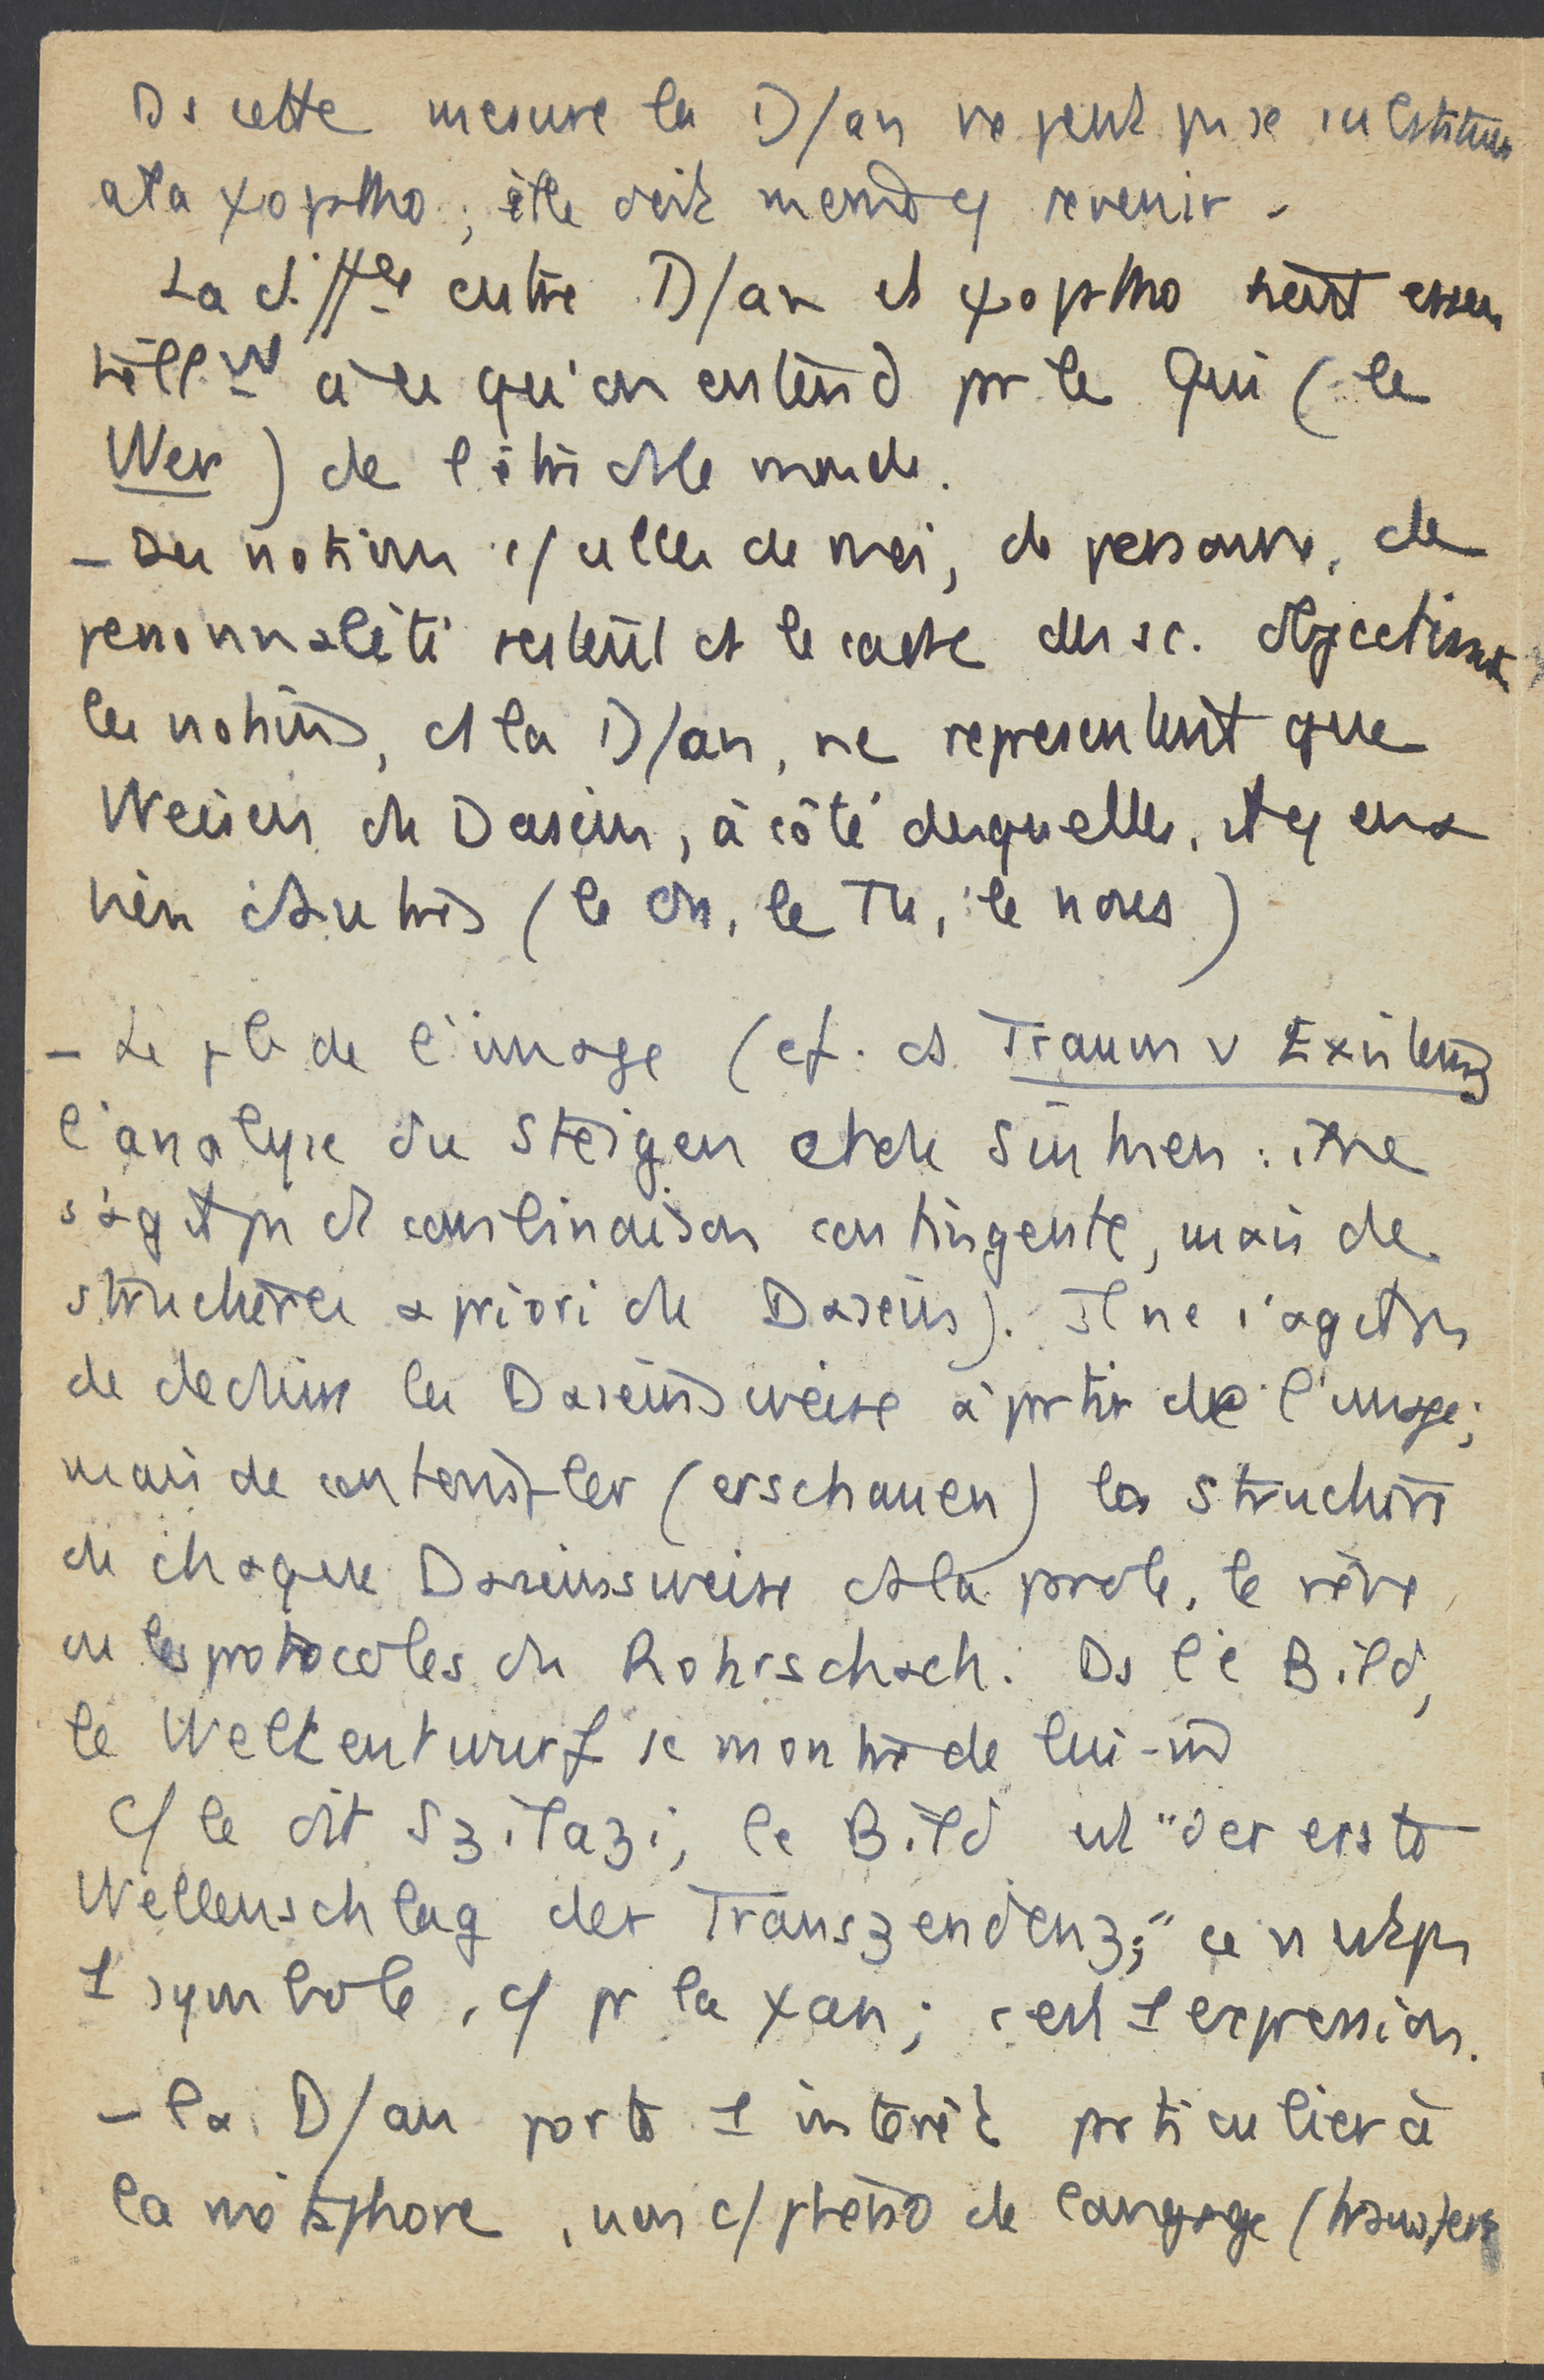 Ds cette mesure la D/an ne peut pas se substituer
à la ψopatho ; elle doit même y revenir.
La diffce entre D/an et ψopatho tient essen
tiellmt à ce qu'on entend pr le Qui (le
Wer) de l'être ds le monde.
- Des notions c/ celles de moi, de personne, de
personnalité restent ds le cadre des sc. objectives
les notions, ds la D/an, ne représentent que
Weisen de Dasein, à côté desquelles, il y en a
bien d'autres (le On, le Tu, le nous)
- Le pb de l'image (cf. ds Traum u Existenz
l'analyse du Steigen et du Sinken : il ne
s'agit pas de combinaison contingente, mais de
structures a priori du Dasein). Il ne s'agit pas
de déduire les Daseinsweise à partir de l'image ;
mais de contempler (erschauen) la structure
de chaque Daseinsweise ds la parole, le rêve,
ou les protocoles du Rohrschach. Ds le Bild,
le Weltentwurf se montre de lui-m
C/ le dit Szilazi, le Bild est "der erste
Wellenschlag der Transzendenz ;" ce n'est pas
1 symbole, c/ pr la ψan ; c'est 1 expression.
- la D/an porte 1 intérêt particulier à
la métaphore, non c/ phéno de langage (transfert